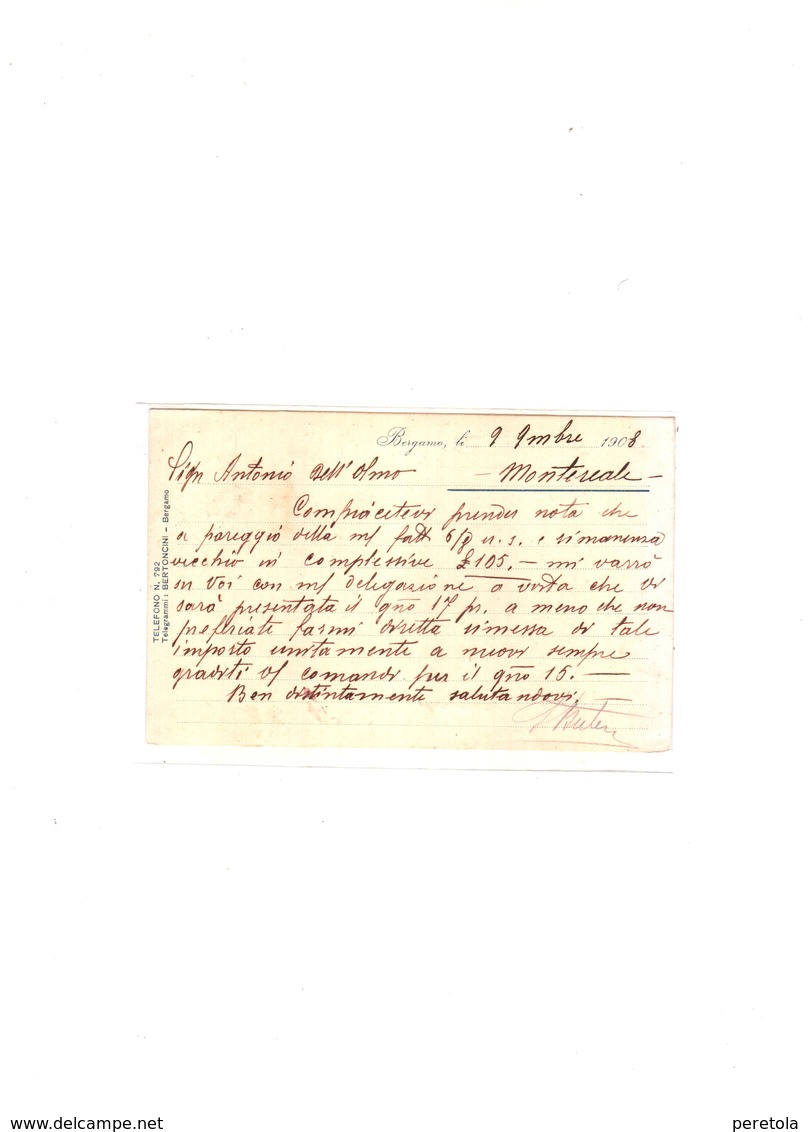 Bergamo, li 9 9mbre 1908
Sigr Antonio Dell'Olmo - Montereale -
Compiacetevi prender nota che
a pareggio della m/ fatt 6/9 u.s. e rimanenza
vecchio in complessive £105.- mi varrò
su Voi con m/ delegazione a vista che vi
sarà presentata il gno 17 pr. a meno che non
preferiate farmi diretta rimessa di tale
importo unitamente a nuovi sempre
graditi v/ comandi per il gno 15. -
Ben distintamente salutandovi. -
TELEFONO N. 792
Telegrammi: BERTONCINI - Bergamo
www.delcampe.net
peretola